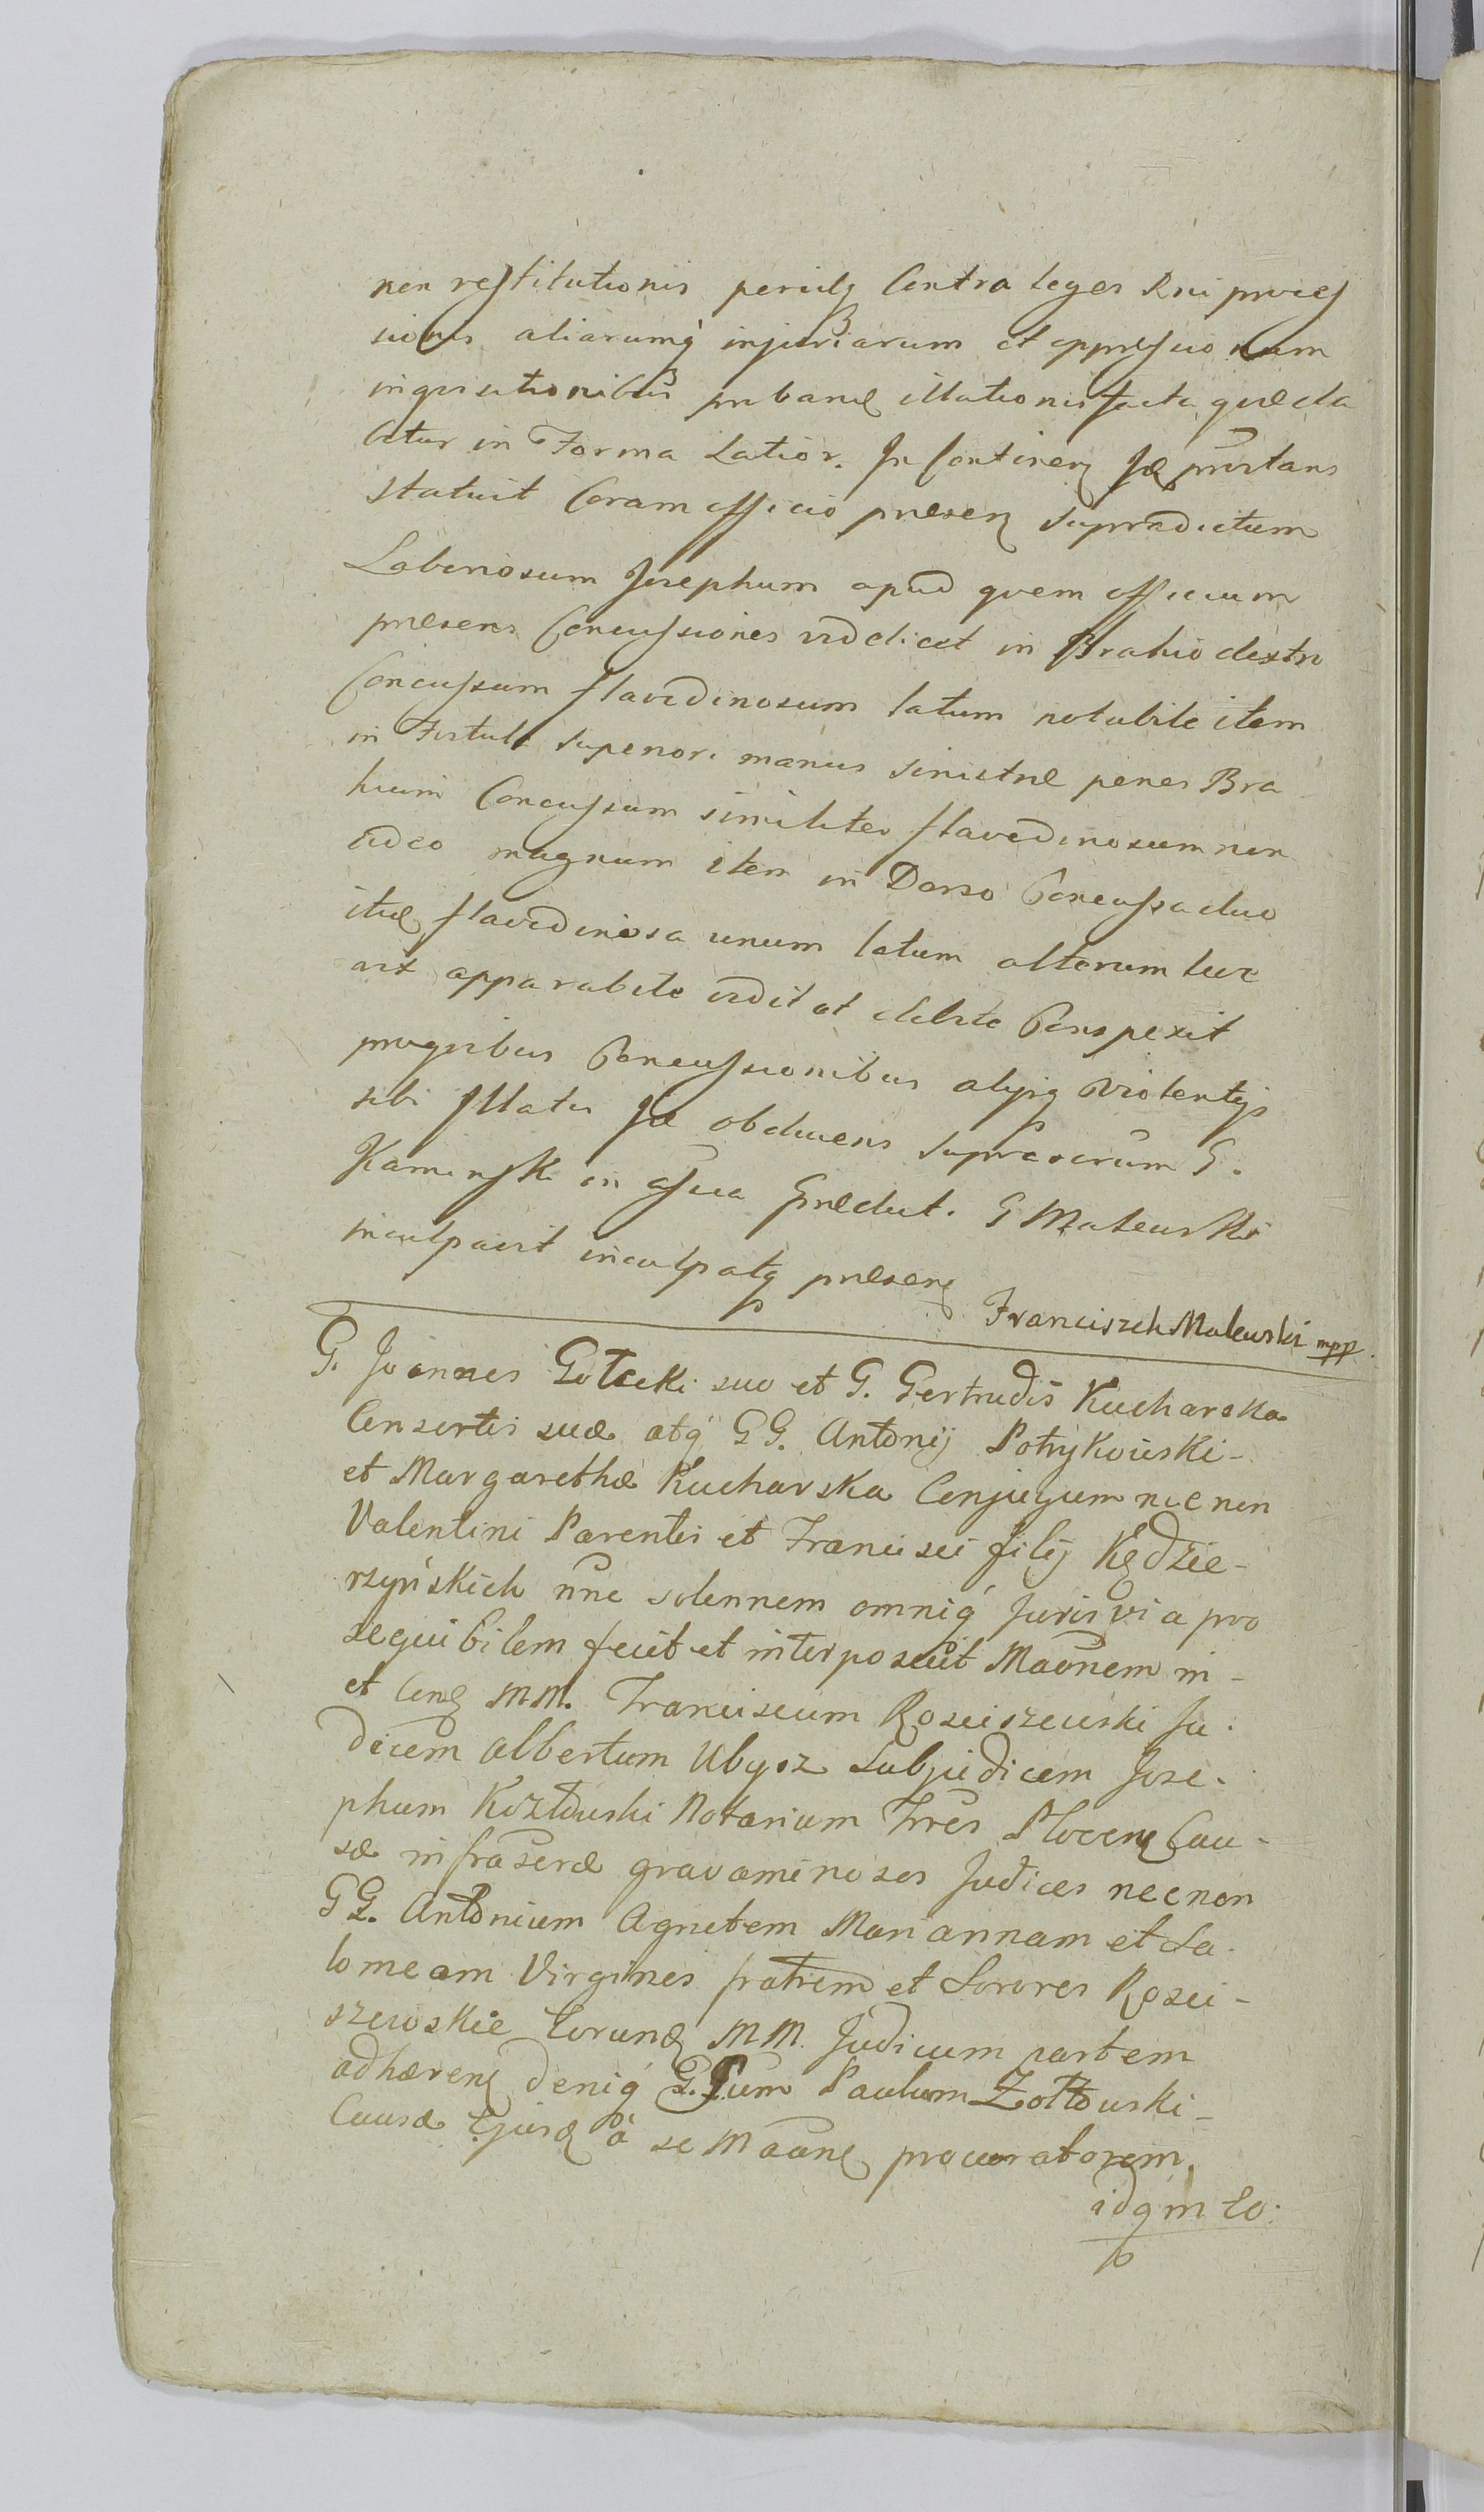 non restitutionis periulq Contra leges Rni proces
sionis aliarumq injuriarum et oppressionum
inquisitionibus proband illationis facta quæ da
bitur in Forma Latior. In Continen se prntans
statuit Coram officio præsen supradictum
Laboriosum Josephum apud quem officium
præsens Concussiones videlicet in Brahio dextro
Concussum flavedinosum latum notabile item
in Fistula superiori manus sinistræ penes Bra
hium Concussum similiter flavedinosum non
adeo magnum item in Dorso Concussa duo
itid flavedinosa unum latum alterum
vix apparabile vidit et debite Conspexit
pro quibus Concussionibus alysq violentys
sibi Illatis se obducens suprascrum G.
Kaminski in assua præd. G Malewski
inculpavit inculpatq præsen
Franciszek Malewski mpp.
G. Joannes Gołecki suo et G. Gertrudis Kucharska
Consortis suæ atq GG. Antonij Potrykowski
et Margarethæ Kucharska Conjugum nec non
Valentini Parentis et Francisci filij Kędzie-
rzyńskich nne solennem omniq Juris via pro
sequibilem fecit et interposuit Maonem in-
et Con MM. Franciscum Rosciszewski Ju-
dicem Albertum Ubysz Subjudicem Jose-
phum Kozłowski Notarium Trres Plocen Cau-
sæ infrascræ gravaminosos Judices nec non
GG. Antonium Agnetem Mariannam et Sa-
lomeam Virgines fratrem et Sorores Rosci-
szewskie eorund MM. Judicum partem
adhæren deniq G. Paulum Żołtowski-
Causæ Ejusd à se Maone procuratorem.
idq in eo: